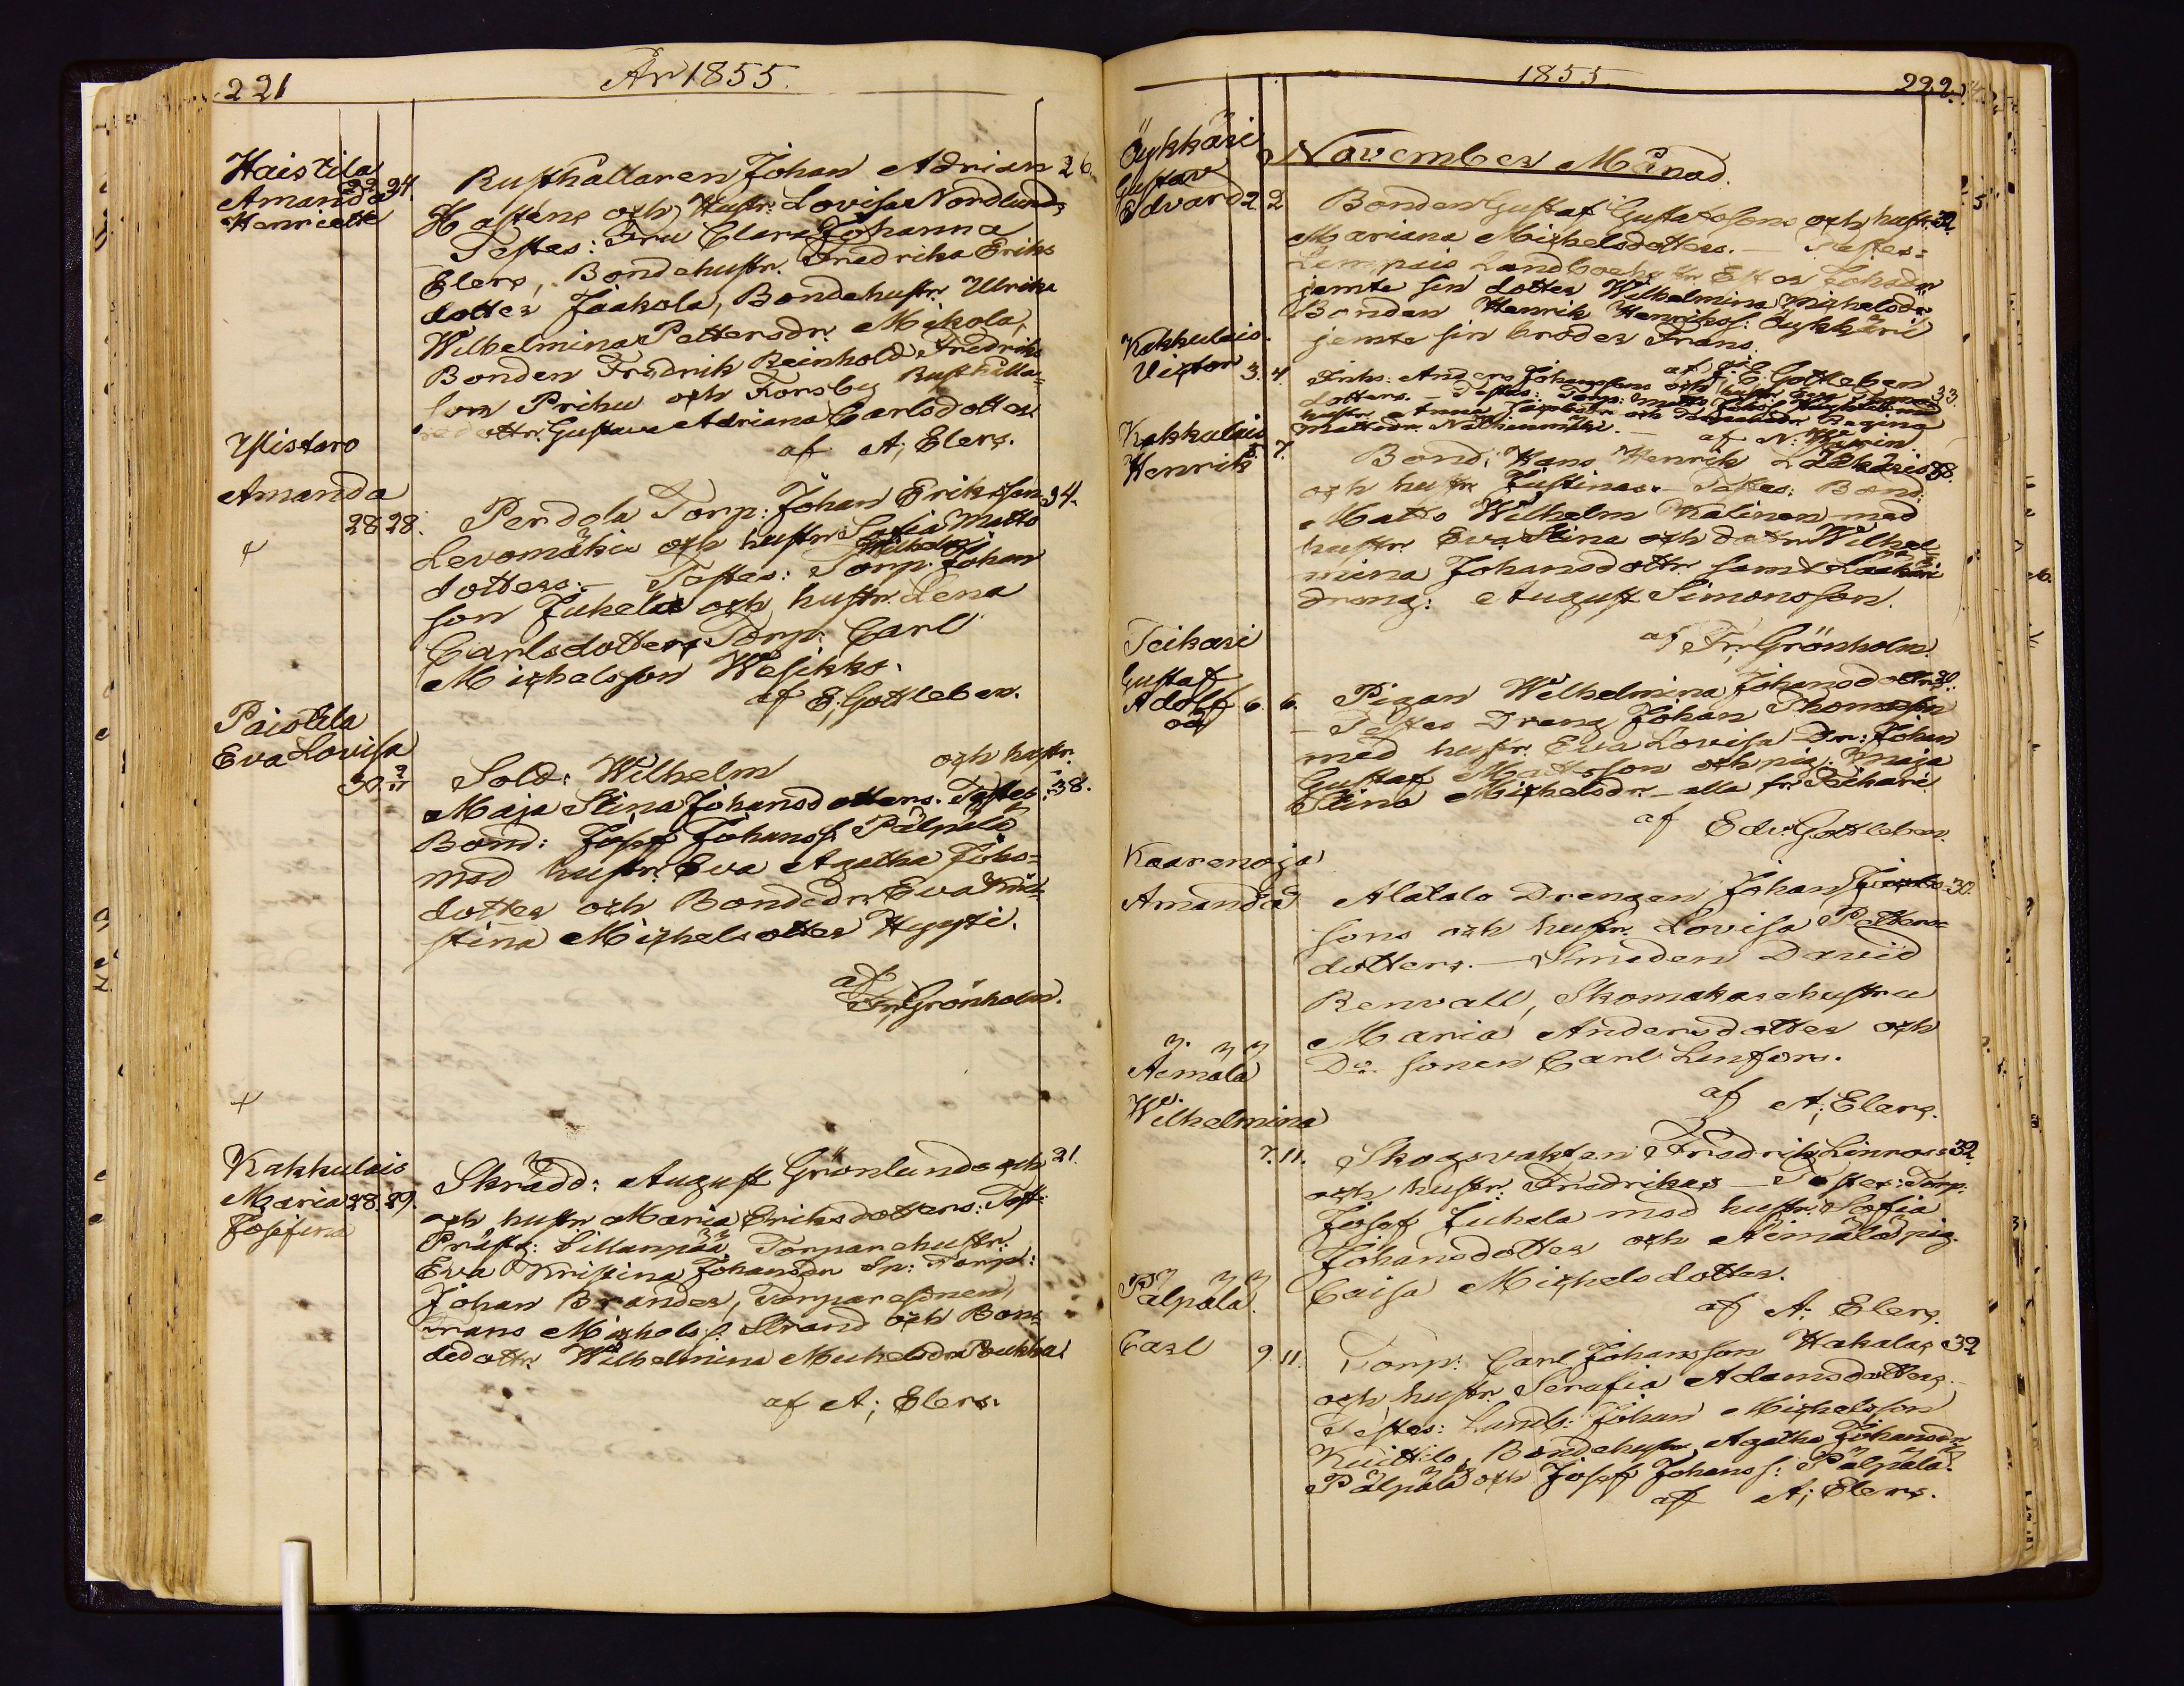 221
År 1855.
Haistila
Amanda 22 24.
Henriette
Rusthållaren Johan Adrian 26.
Hastens och Hustr: Lovisa Nordlunds
Testes: Fru Clara Johanna
Elers, Bondehustr. Fredrika Eriks
dotter Jaakola, Bondehustr. Ulrika
Wilhelmina Pettersdr. Mikola,
Bonden Fredrik Reinhold Fredriks
son Prihu och Forsby Rusthålla=
redottr. Gustava Adriana Carlsdotter
af A; Elers.
Ylistaro
Amanda
28 28.
Perdola Torp: Johan Eriksson 34.
Levomäkis och hustr. Sofia Matts
dotters. – Testes: Torp. Johan Wilhelms
son Juhela och hustr. Lena
Carlsdotter, Torp: Carl
Michelsson Wesikko.
af E; Gottleben.
Paistila
Eva Lovisa
30.
Sold: Wilhelm och hustr.
Maja Stina Johansdotters. Testes: 38.
Bond: Josef Johanss. Pälpälä
med hustr. Eva Agatha Johs=
dotter och Bondedr. Eva Kri=
stina Michelsdotter Hyyti.
af
Fr; Grönholm.
Kakkulais
Maria 28. 29.
Josefina
Skrädd: August Grönlunds och 21.
och hustr Maria Eriksdotters: Test:
Präst: Sillanpää, Torparehustr.
Eva Kristina Johansdr Sp: Torp:
Johan Brander, Torparesonen,
Frans Michels s. Strand och Bon=
dedottr. Wilhelmina Michelsdr Pukkal
af A; Elers.
1855.
222.
November Månad.
Öykkäri
Gustav
Edvard 2. 2
Bonden Gustaf Gustafssons och hustr. 32.
Mariana Michelsdotters. – Testes=
Lempais Landboehustr Ester Johsdr
jemte sin dotter Wilhelmina Michelsdr
Bonden Henrik Henrikss: Öykkäri
jemte sin broder Frans.
af E. Gottleben
Kakkulais.
Victor 3. 4.
Inhs: Anders Johanssons och hustr. 33.
dotters. – Testes: Torp: Matts Johs. med
hustr. Anna Jacobsdr och Regina
Mattsdr.
af N: Warin.
Kakkulais
Henrik 5. 7.
Bond: Hans Henrik Lääkäris 28.
och hustr. Justinas. – Testes: Bond:
Matts Wilhelm Kalinen med
hustr. Eva Stina och dottr. Wilhel=
mina Johansdottr. samt Lääkäri
dräng: August Simonsson.
af Fr; Grönholm.
Teikari
Gustaf
Adolf 6. 6.
oä
Pigan Wilhelmina Johansdotters 30.
– Testes Dräng Johan Thomasson
med hustr. Eva Lovisa Dr: Johan
Gustaf Mattsson och pig. Maja
Stina Michelsdr. – alla fr. Teikari
af Edv: Gottleben.
Kaarenoja
Amanda
Alatalo Drengen Johan Jacobs= 30.
sons och hustr. Lovisa Petters=
dotters. – Smeden David
Renvall, Skomakarehustru
Maria Andersdotter och
Do. sonen Carl Lenfors.
af A; Elers.
Äemälä
Wilhelmina
7. 11.
Skogsvakten Fredrik Linroos 32.
och hustr. Fredrikas – Testes: Torp.
Josef Juhela med hustr. Sofia
Johansdotter och Äimälä pig.
Caisa Michelsdotter.
af A: Elers.
Pälpälä.
Carl 9 11.
Torp: Carl Johansson Hakalas 32
och hustr. Serafia Adamsdotters. –
Testes: Landb: Johan Michelsson
Kuittilo, Bondehustr. Agatha Johansdr.
Pälpälä och Josef Johanss: Pälpälä.
af A; Elers.